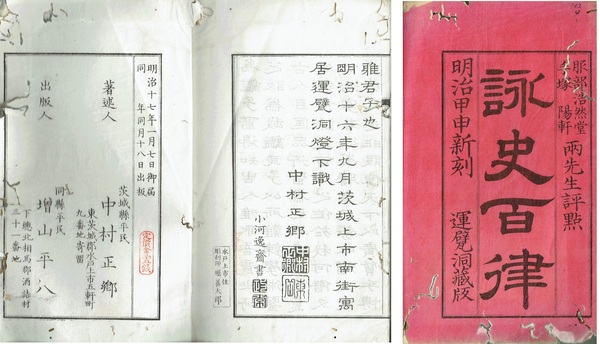 服部浩然堂
手塚陽軒
兩先生評點
詠史百律
明治甲申新刻
運甓洞藏版
雅君子也
明治十六年九月茨城上市南街寓
居運甓洞燈下識
中村正鄉
小河逸齋書
水戸上市住
明治十七年一月七日御届
同年同月十八日出板
著述人
茨城縣平民
中村正鄉
東茨城郡水戸上市五軒町
九番地寄留
出版人
同縣平民
増山平八
下總北相馬郡酒詰村
三十一番地